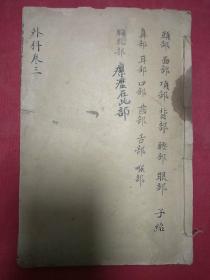 頭部 面部 項部 背部 腰部 眼部
鼻部 耳部 口部 齒部 舌部 喉部
瘰癧在此部
外科卷三